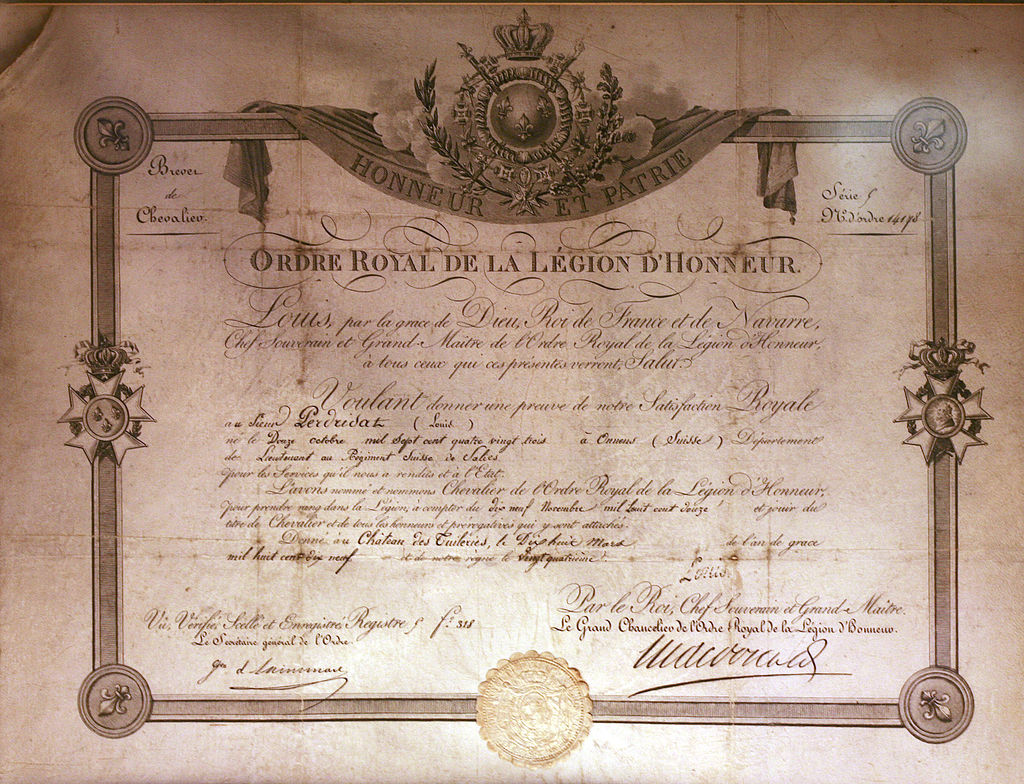 HONNEUR ET PATRIE
Brevet
de
Chevalier.
Série 5
N.º d'ordre 14178
ORDRE ROYAL DE LA LÉGION D'HONNEUR.
Louis, par la grace de Dieu, Roi de France et de Navarre,
Chef Souverain et Grand-Maître de l'Ordre Royal de la Légion d'Honneur,
à tous ceux qui ces présentes verront, Salut.
Voulant donner une preuve de notre Satisfaction Royale
au Sieur Perdrisat (Louis)
né le Douze octobre mil Sept cent quatre vingt trois à Onnens (Suisse) Département
de Lieutenant au Régiment Suisse de Salis
pour les Services qu'il nous a rendus et à l'Etat.
L'avons nommé et nommons Chevalier de l'Ordre Royal de la Légion d'Honneur,
pour prendre rang dans la Légion, à compter du dix neuf Novembre mil huit cent douze et jouir du
titre de Chevalier et de tous les honneurs et prérogatives qui y sont attachés.
Donné au Château des Tuileries, le Dix huit Mars de l'an de grace
mil huit cent dix neuf et de notre règne le vingt quatrième.
Louis
Par le Roi, Chef Souverain et Grand-Maître.
Vu, Vérifié, Scellé et Enregistré, Registre 5 f.º 318
Le Grand Chancelier de l'Ordre Royal de la Légion d'Honneur.
Le Secrétaire général de l'Ordre.
Macdonald